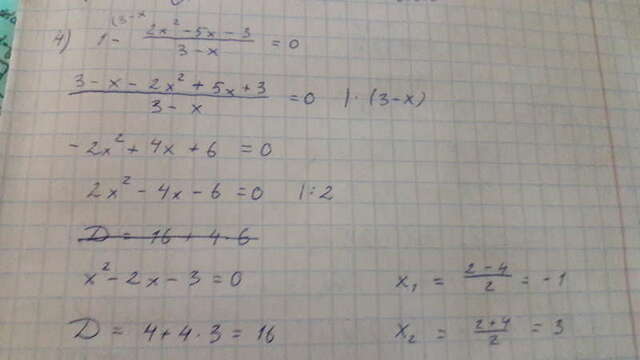 4) 1 - (3-x (2x² - 5x - 3)/(3 - x) = 0
(3 - x - 2x² + 5x + 3)/(3 - x) = 0 | · (3 - x)
-2x² + 4x + 6 = 0
2x² - 4x - 6 = 0 | : 2
D = 16 + 4·6
x² - 2x - 3 = 0
D = 4 + 4 · 3 = 16
x₁ = (2 - 4)/2 = -1
x₂ = (2 + 4)/2 = 3